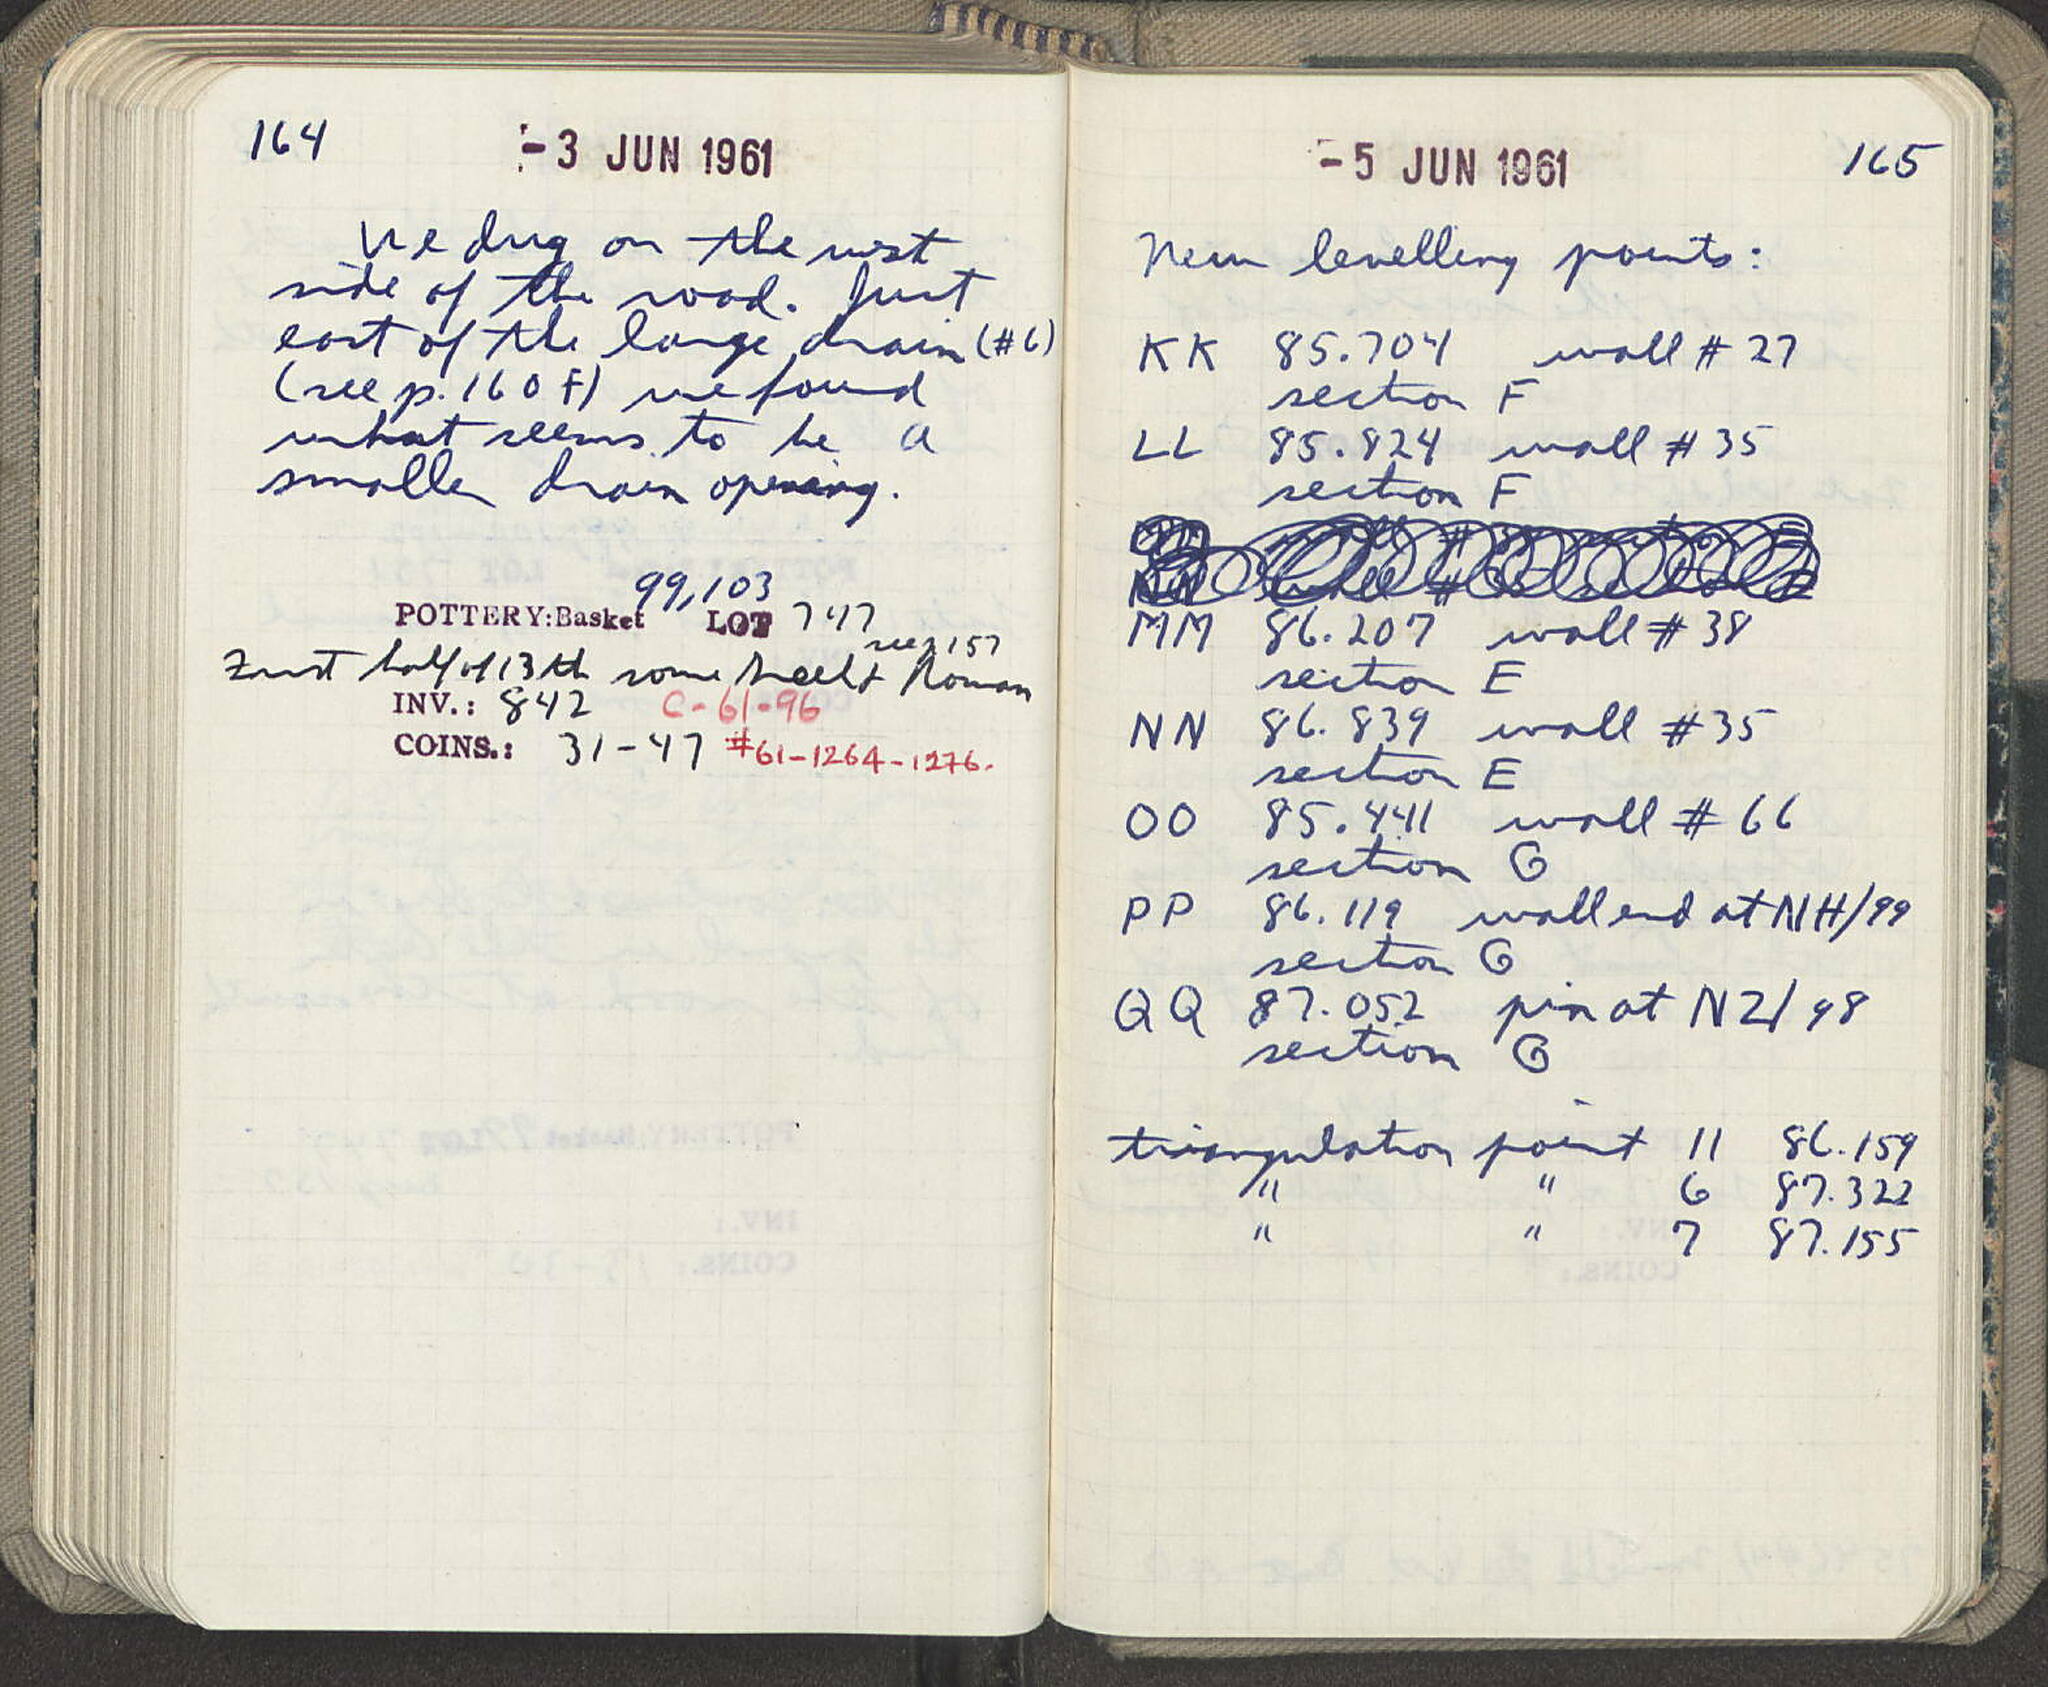 164
-3 JUN 1961
We dug on the west
side of the road. Just
east of the large drain (#6)
(see p. 160 F) we found
what seems to be a
smaller drain opening.
99,103
POTTERY: Basket LOT 747
see p. 157
half of 13th some Roman
INV.: 842 C-61-96
COINS.: 31-47 #61-1264-1276.
-5 JUN 1961
165
New levelling points:
KK 85.704 wall #27
section F
LL 85.824 wall #35
section F
MM 86.207 wall #38
section E
NN 86.839 wall #35
section E
OO 85.441 wall #66
section G
PP 86.119 wall end at NH/99
section G
QQ 87.052 pin at NZ/98
section G
triangulation point 11 86.159
" " 6 87.322
" " 7 87.155